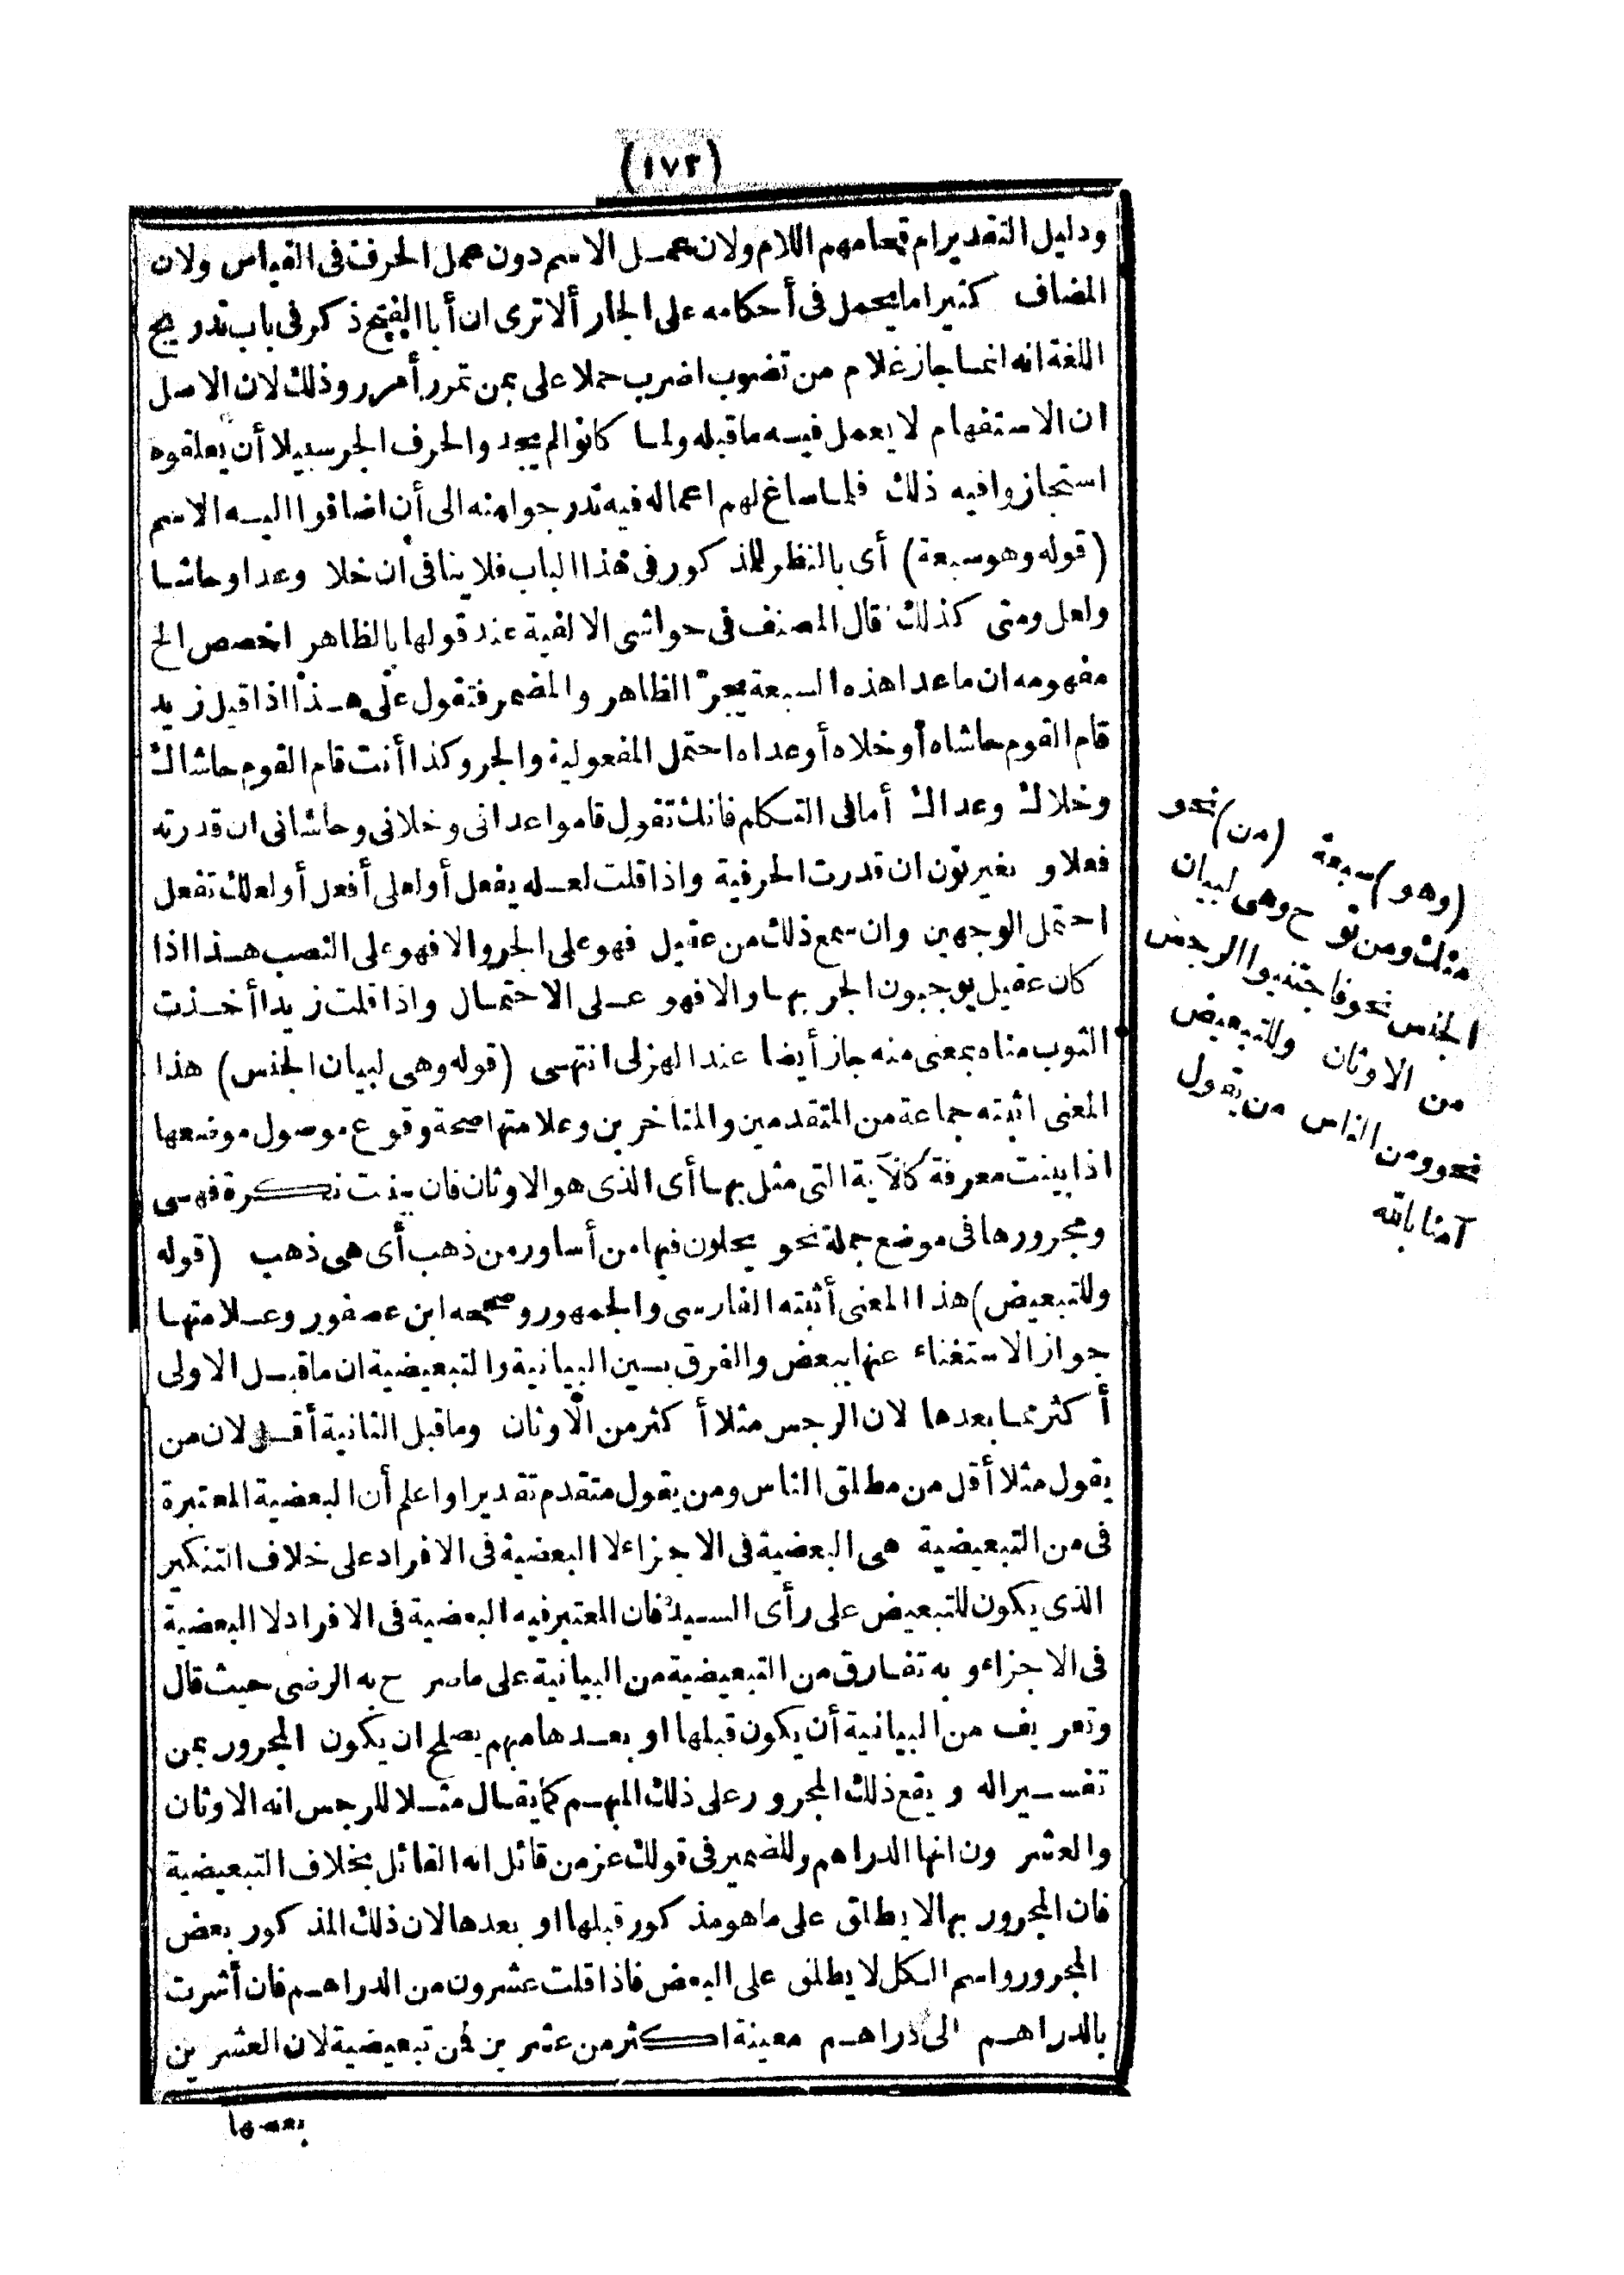 (١٧٣)
ودليل التقديرام قحامهم اللام ولان عمل الاسم دون عمل الحرف فى القياس ولان
المضاف كثيرا ما يحمل فى أحكامه على الجار ألا ترى ان أبا الفتح ذكر فى باب تدريج
اللغة انه انما جاز غلام من تضرب اضرب حملا على بمن تمرر أمرر وذلك لان الاصل
ان الاستفهام لا يعمل فيه ما قبله ولما كانوا لم يجدوا لحرف الجر سبيلا أن يعلقوه
استجازوا فيه ذلك فلما ساغ لهم اعماله فيه تدرجوا منه الى أن اضافوا اليه الاسم
(قوله وهو سبعة) أى بالنظر للمذكور فى هذا الباب فلا ينافى ان خلا وعدا وحاشا
ولعل ومتى كذلك قال المصنف فى حواشى الالفية عند قولها بالظاهر اخصص الخ
مفهومه ان ما عدا هذه السبعة يجرّ الظاهر والمضمر فتقول على هذا اذا قيل زيد
قام القوم حاشاه أو خلاه أو عداه احتمل المفعولية والجر وكذا أنت قام القوم حاشاك
وخلاك وعداك أما فى التكلم فانك تقول قاموا عدانى وخلانى وحاشانى ان قدرته
فعلا و بغير نون ان قدرت الحرفية واذا قلت لعله يفعل أو لعلى أفعل أو لعلك تفعل
احتمل الوجهين وان سمع ذلك من عقيل فهو على الجر والا فهو على النصب هذا اذا
كان عقيل يوجبون الجر بها والا فهو على الاحتمال واذا قلت زيدا أخذت
الثوب متاه بمعنى منه جاز أيضا عند الهزلى انتهى (قوله وهى لبيان الجنس) هذا
المعنى اثبته جماعة من المتقدمين والمتأخرين وعلامتها صحة وقوع موصول موضعها
اذا بينت معرفة كالآية التى مثل بها أى الذى هو الاوثان فان بينت نكرة فهى
ومجرورها فى موضع جملة نحو يحلون فيها من أساور من ذهب أى هى ذهب (قوله
وللتبعيض) هذا المعنى أثبته الفارسى والجمهور وصححه ابن عصفور وعلامتها
جواز الاستغناء عنها ببعض والفرق بين البيانية والتبعيضية ان ما قبل الاولى
أكثر مما بعدها لان الرجس مثلا أكثر من الاوثان وما قبل الثانية أقل لان من
يقول مثلا أقل من مطلق الناس ومن يقول متقدم تقديرا واعلم أن البعضية المعتبرة
فى من التبعيضية هى البعضية فى الاجزاء لا البعضية فى الافراد على خلاف التنكير
الذى يكون للتبعيض على رأى السيد فان المعتبر فيه البعضية فى الافراد لا البعضية
فى الاجزاء و به تفارق من التبعيضية من البيانية على ما صرح به الرضى حيث قال
وتعريف من البيانية أن يكون قبلها او بعدها مبهم يصلح ان يكون المجرور بمن
تفسيرا له و يقع ذلك المجرور على ذلك المبهم كما يقال مثلا للرجس انه الاوثان
والعشرون انها الدراهم وللضمير فى قولك عز من قائل انه القائل بخلاف التبعيضية
فان المجرور بها لا يطلق على ما هو مذكور قبلها او بعدها لان ذلك المذكور بعض
المجرور واسم الكل لا يطلق على البعض فاذا قلت عشرون من الدراهم فان أشرت
بالدراهم الى دراهم معينة اكثر من عشرين فمن تبعيضية لان العشرين
بعضها
(وهو) سبعة (من) نحو
منك ومن نوح وهى لبيان
الجنس نحو فاجتنبوا الرجس
من الاوثان وللتبعيض
نحو ومن الناس من يقول
آمنا بالله